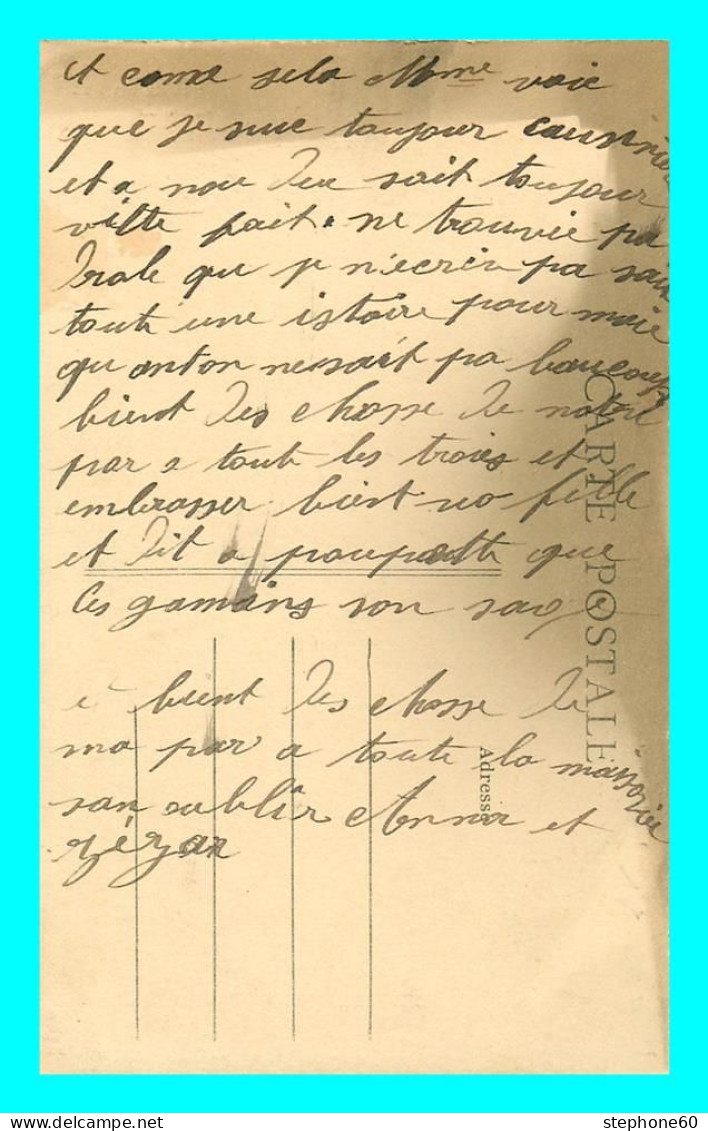 et come sela Mme voie
que je sue toujour
et a nou deu sait toujour
vitte fait. ne trouvée pa
drole que je n'ecrir pa sait
toute une istoire pour moie
qu anton ne sait pa baucoup
bient des chosse de notre
par a toute les trois et
embrasser bient no fille
et dit a poupette que
les gamains son
bient des chosse de
ma par a toute la maissoniée
san oublir Anna et
zézar
CARTE POSTALE
Adresse
stephone60